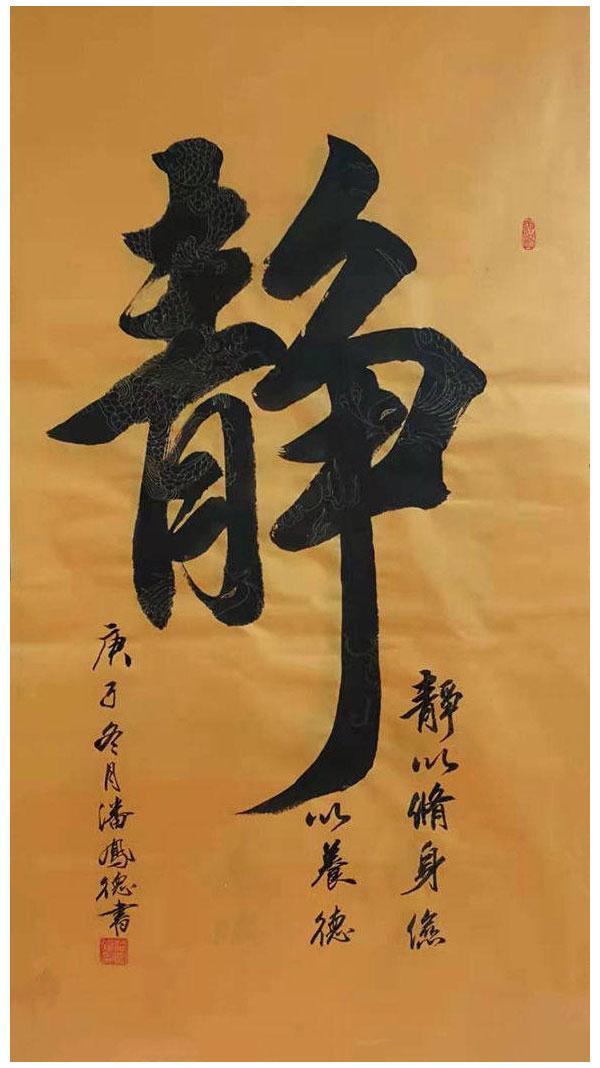 靜
靜以脩身儉
以養德
庚子冬月潘鳳德書